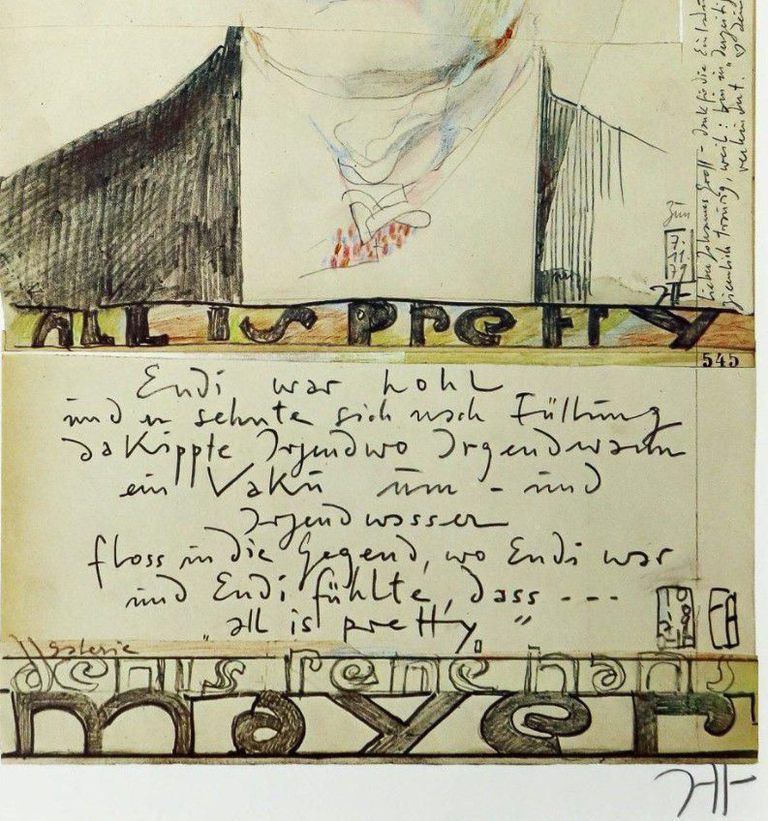 Lieber Johannes Gross - dank für die
ziemlich traurig, weil: bin in
verkühlt.
ALL IS PrETTY
545
Endi war hohl
und er sehnte sich nach Füllung
da kippte Irgendwo Irgendwann
ein Vakü üm - und
Irgendwasser
floss in die Gegend, wo Endi war
und Endi fühlte, dass ---
"all is pretty"
galerie
denis rene hans
mayer